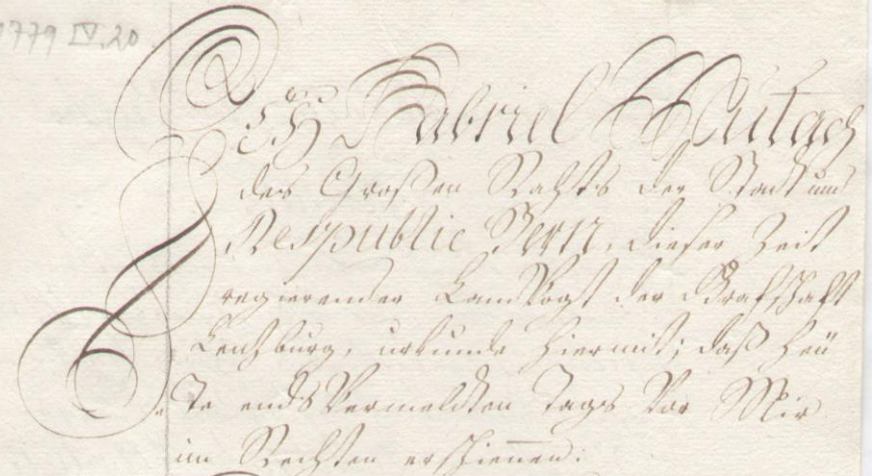 1779 IV. 20
Ich Gabriel Mutach
des Großen Rahts der Statt und
Respublic Bern, dieser Zeit
regierender Landvogt der Grafschaft
Lenzburg, urkunde hiermit; daß heü
te ends vermeldten Tags vor Mir
im Rechten erschienen: